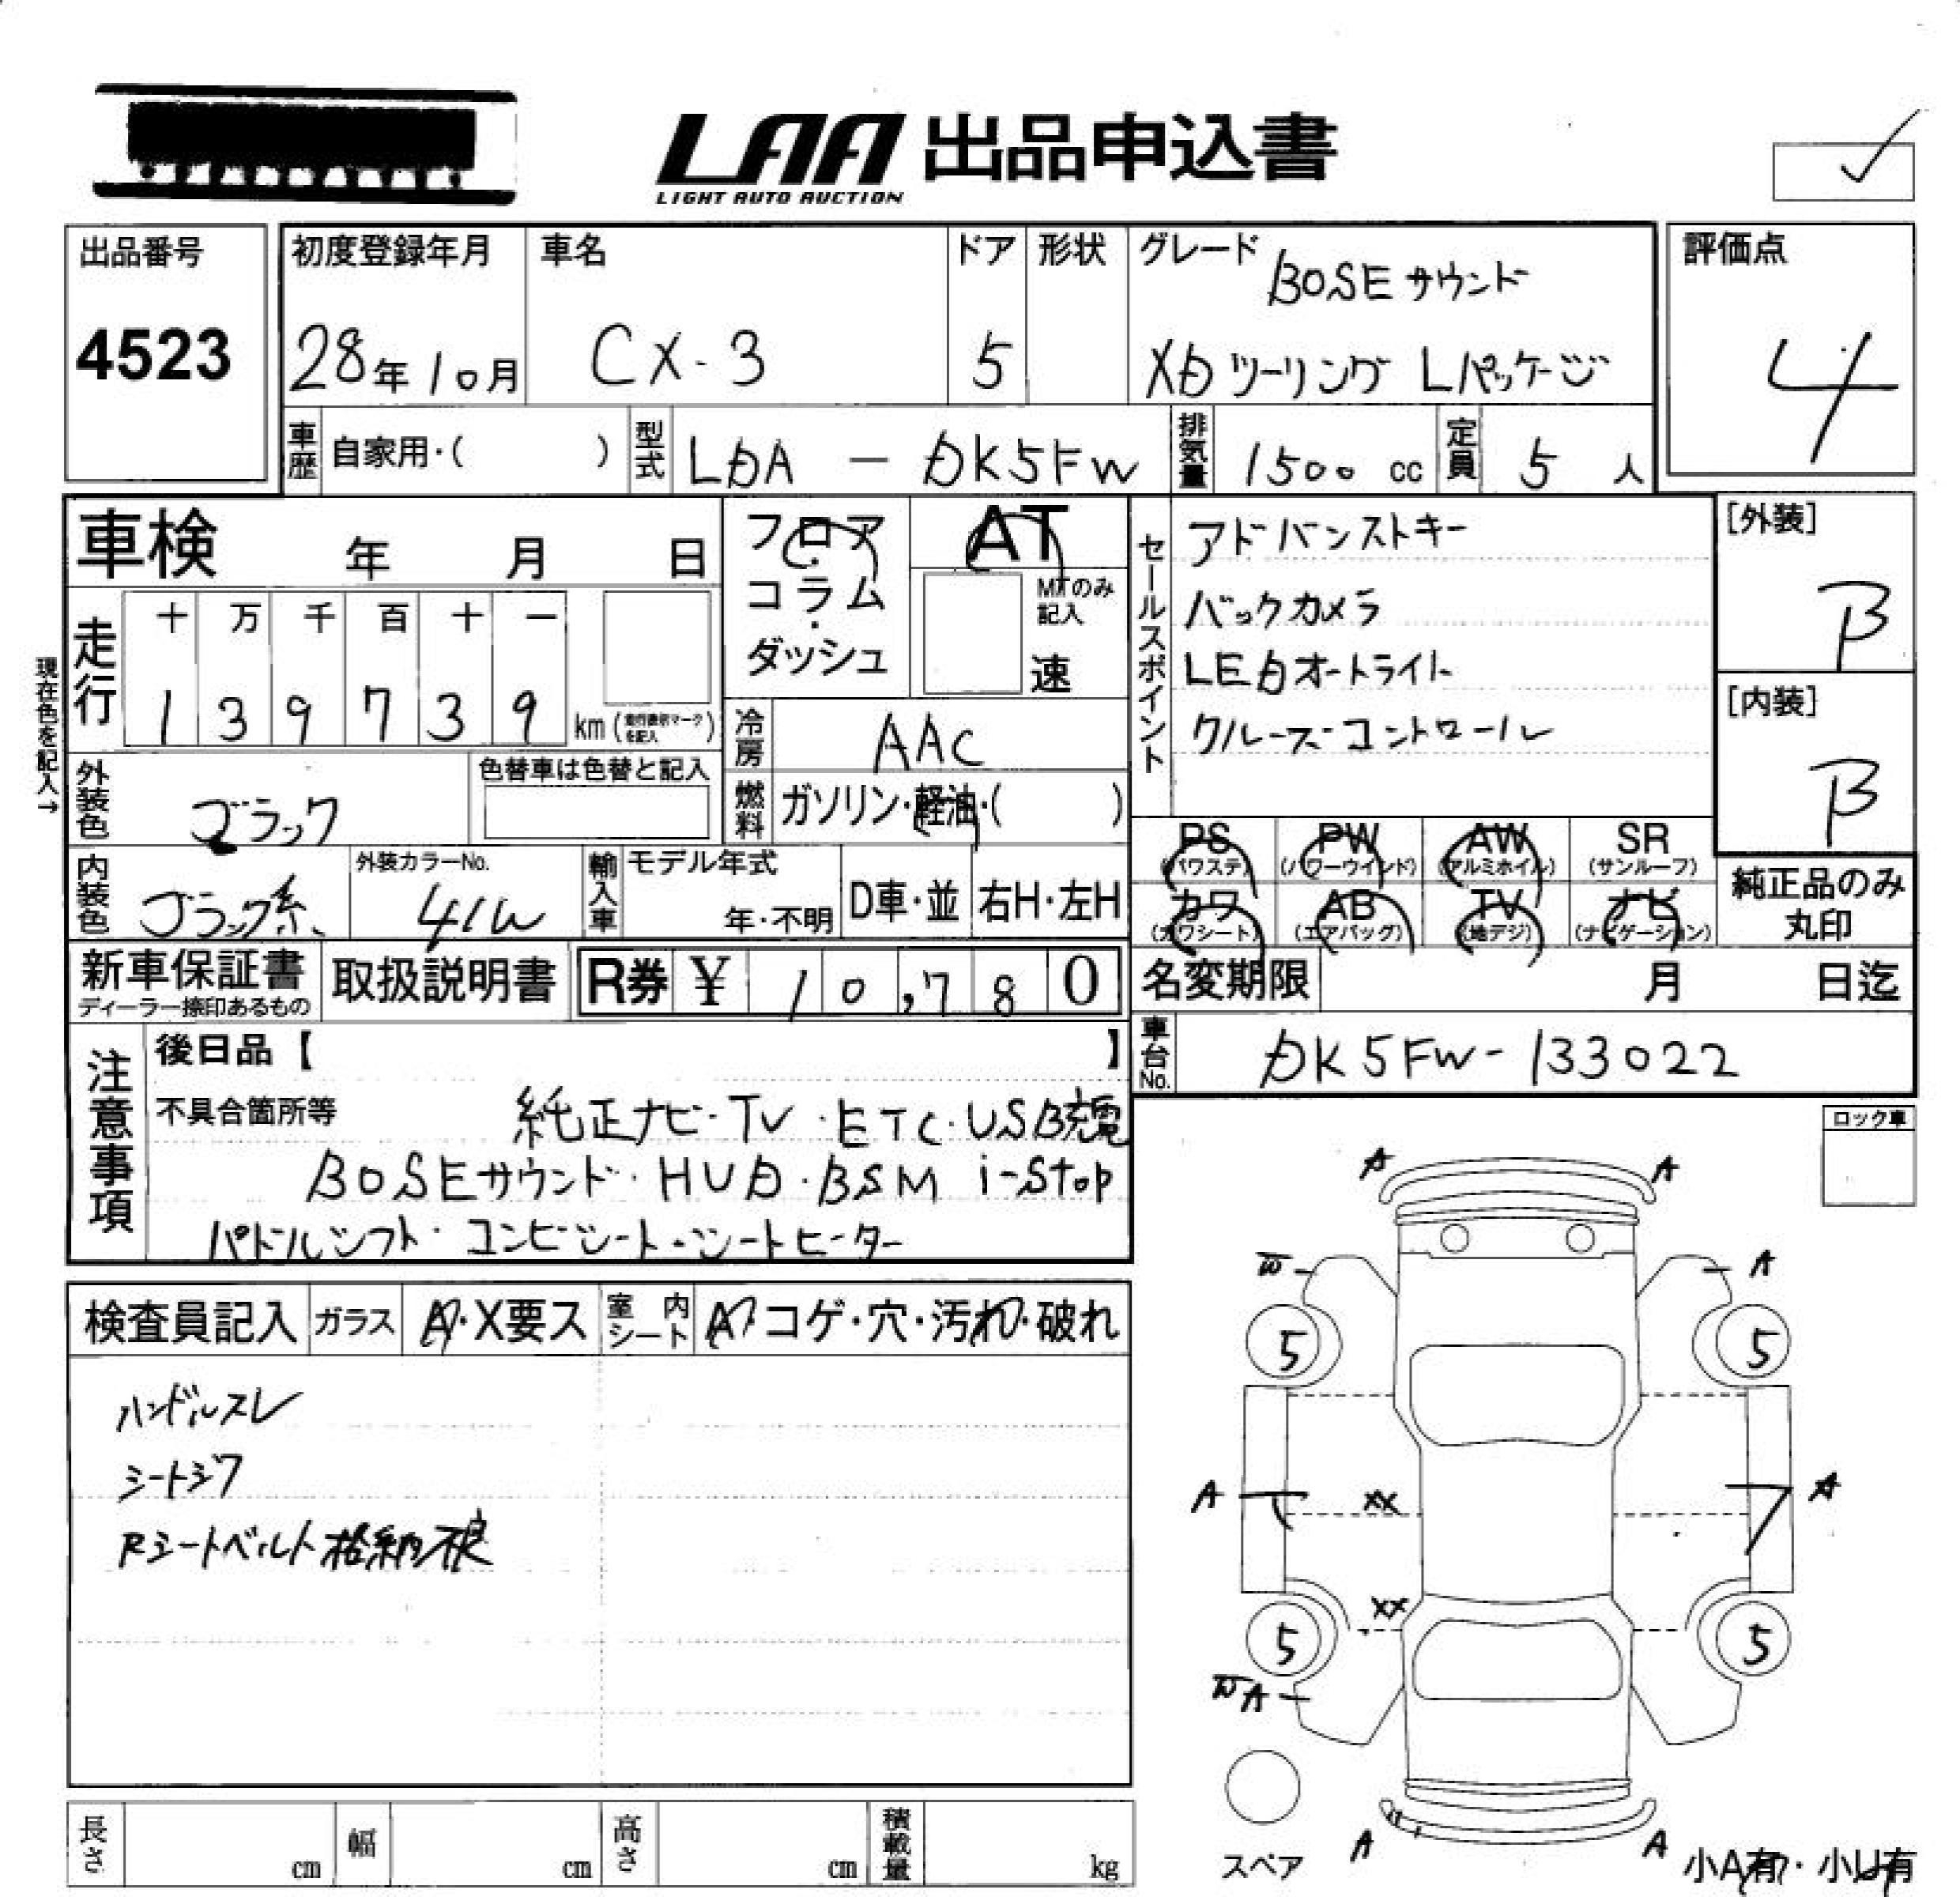 LAA 出品申込書
LIGHT AUTO AUCTION
出品番号
4523
初度登録年月
28年10月
車名
CX-3
ドア
5
形状
グレード
BOSEサウンド
XDツーリング Lパッケージ
評価点
4
車歴
自家用・( )
型式
LDA - DK5FW
排気量
1500 cc
定員
5 人
車検 年 月 日
フロア
・
コラム
・
ダッシュ
AT
MTのみ
記入
速
セールスポイント
アドバンストキー
バックカメラ
LEDオートライト
クルーズコントロール
[外装]
B
[内装]
B
現在色を記入→
走行
十 万 千 百 十 一
1 3 9 7 3 9 km (走行表示マークを記入)
冷房
AAC
外装色
ブラック
色替車は色替と記入
燃料
ガソリン・軽油・( )
PS
(パワステ)
PW
(パワーウインド)
AW
(アルミホイル)
SR
(サンルーフ)
内装色
ブラック系
外装カラーNo.
41W
輸入車
モデル年式
年・不明
D車・並
右H・左H
カワ
(カワシート)
AB
(エアバッグ)
TV
(地デジ)
ナビ
(ナビゲーション)
純正品のみ
丸印
新車保証書
ディーラー捺印あるもの
取扱説明書
R券 ¥ 10,780
名変期限 月 日迄
車台No.
DK5FW-133022
注意事項
後日品【 】
不具合箇所等
純正ナビ・TV・ETC・USB充電
BOSEサウンド・HUD・BSM i-stop
パドルシフト・コンビシート・シートヒーター
ロック車
検査員記入
ガラス
A・X要ス
室内シート
A コゲ・穴・汚れ・破れ
ハンドルスレ
シートシワ
Rシートベルト格納不良
A A
W A
5 5
A XX A
XX
5 5
WA
スペア
A A
小A有・小U有
長さ cm
幅 cm
高さ cm
積載量 kg